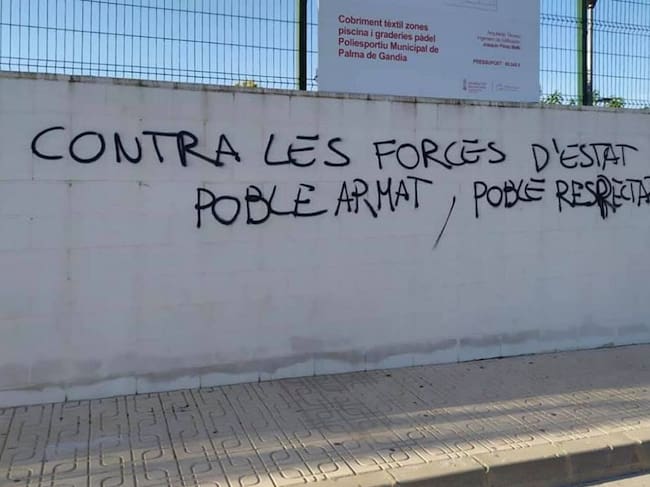 Cobriment tèxtil zones
piscina i graderies pàdel
Poliesportiu Municipal de
Palma de Gandia
PRESSUPOST
CONTRA LES FORCES D'ESTAT
POBLE ARMAT, POBLE RESPECTA